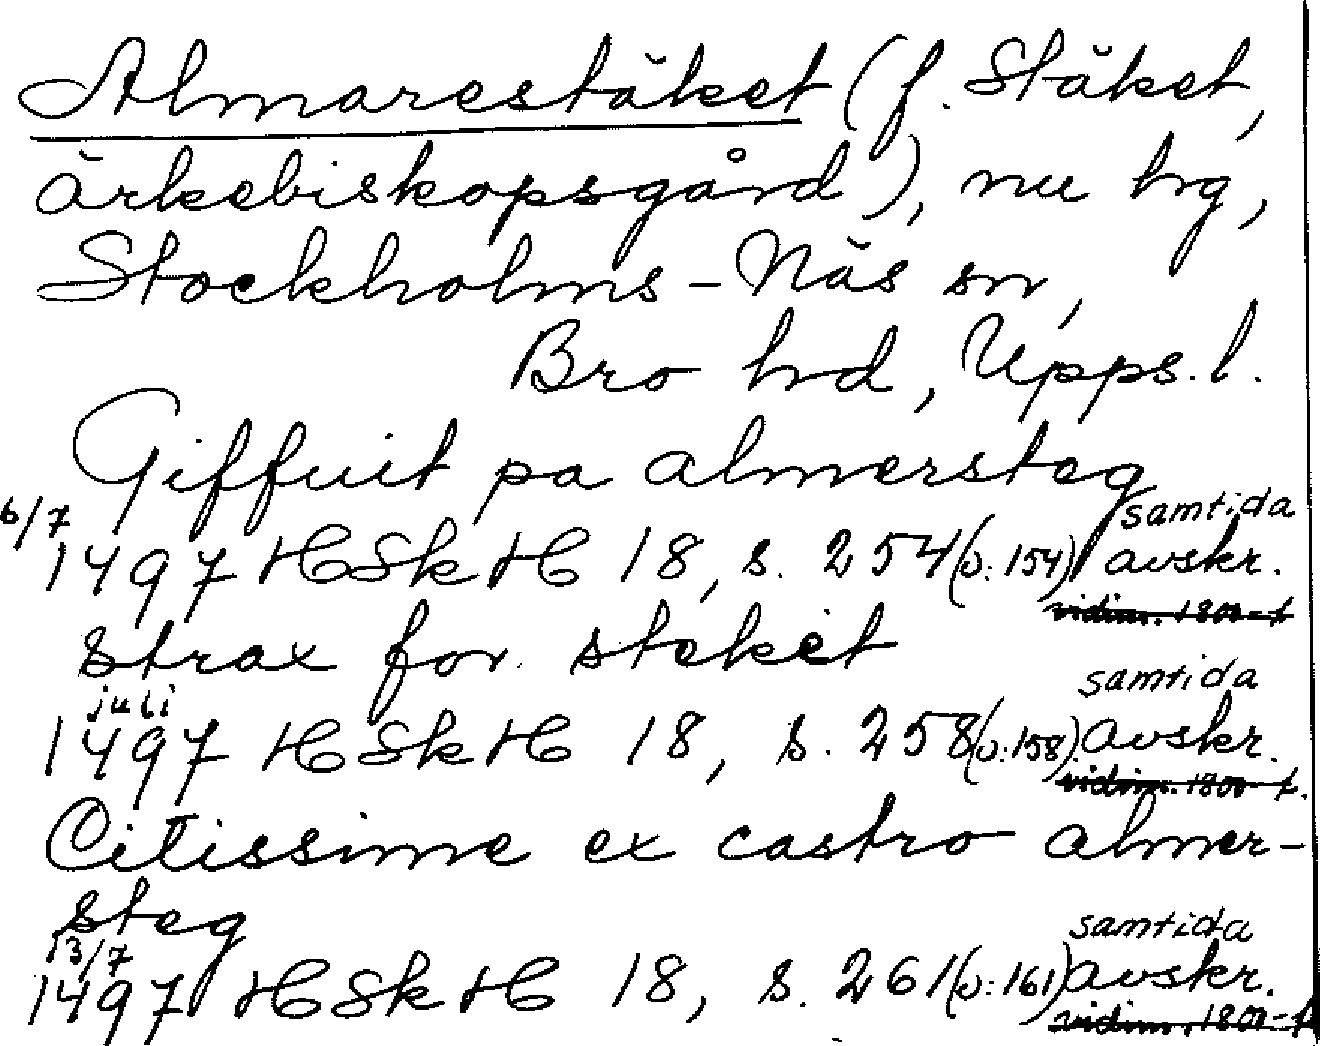 Almarestäket (f. Stäket,
ärkebiskopsgård), nu hrg,
Stockholms-Näs sn,
Bro hrd, Upps. l.
Giffuit pa almersteg
6/7 samtida
1497 HSkH 18, s. 254 (o: 154) avskr.
vidim. 1800-t
Strax for stekit
juli samtida
1497 HSkH 18, s. 258 (o: 158) avskr.
vidim. 1800-t.
Citissime ex castro almer-
steg
13/7 samtida
1497 HSkH 18, s. 261 (o: 161) avskr.
vidim. 1800-t